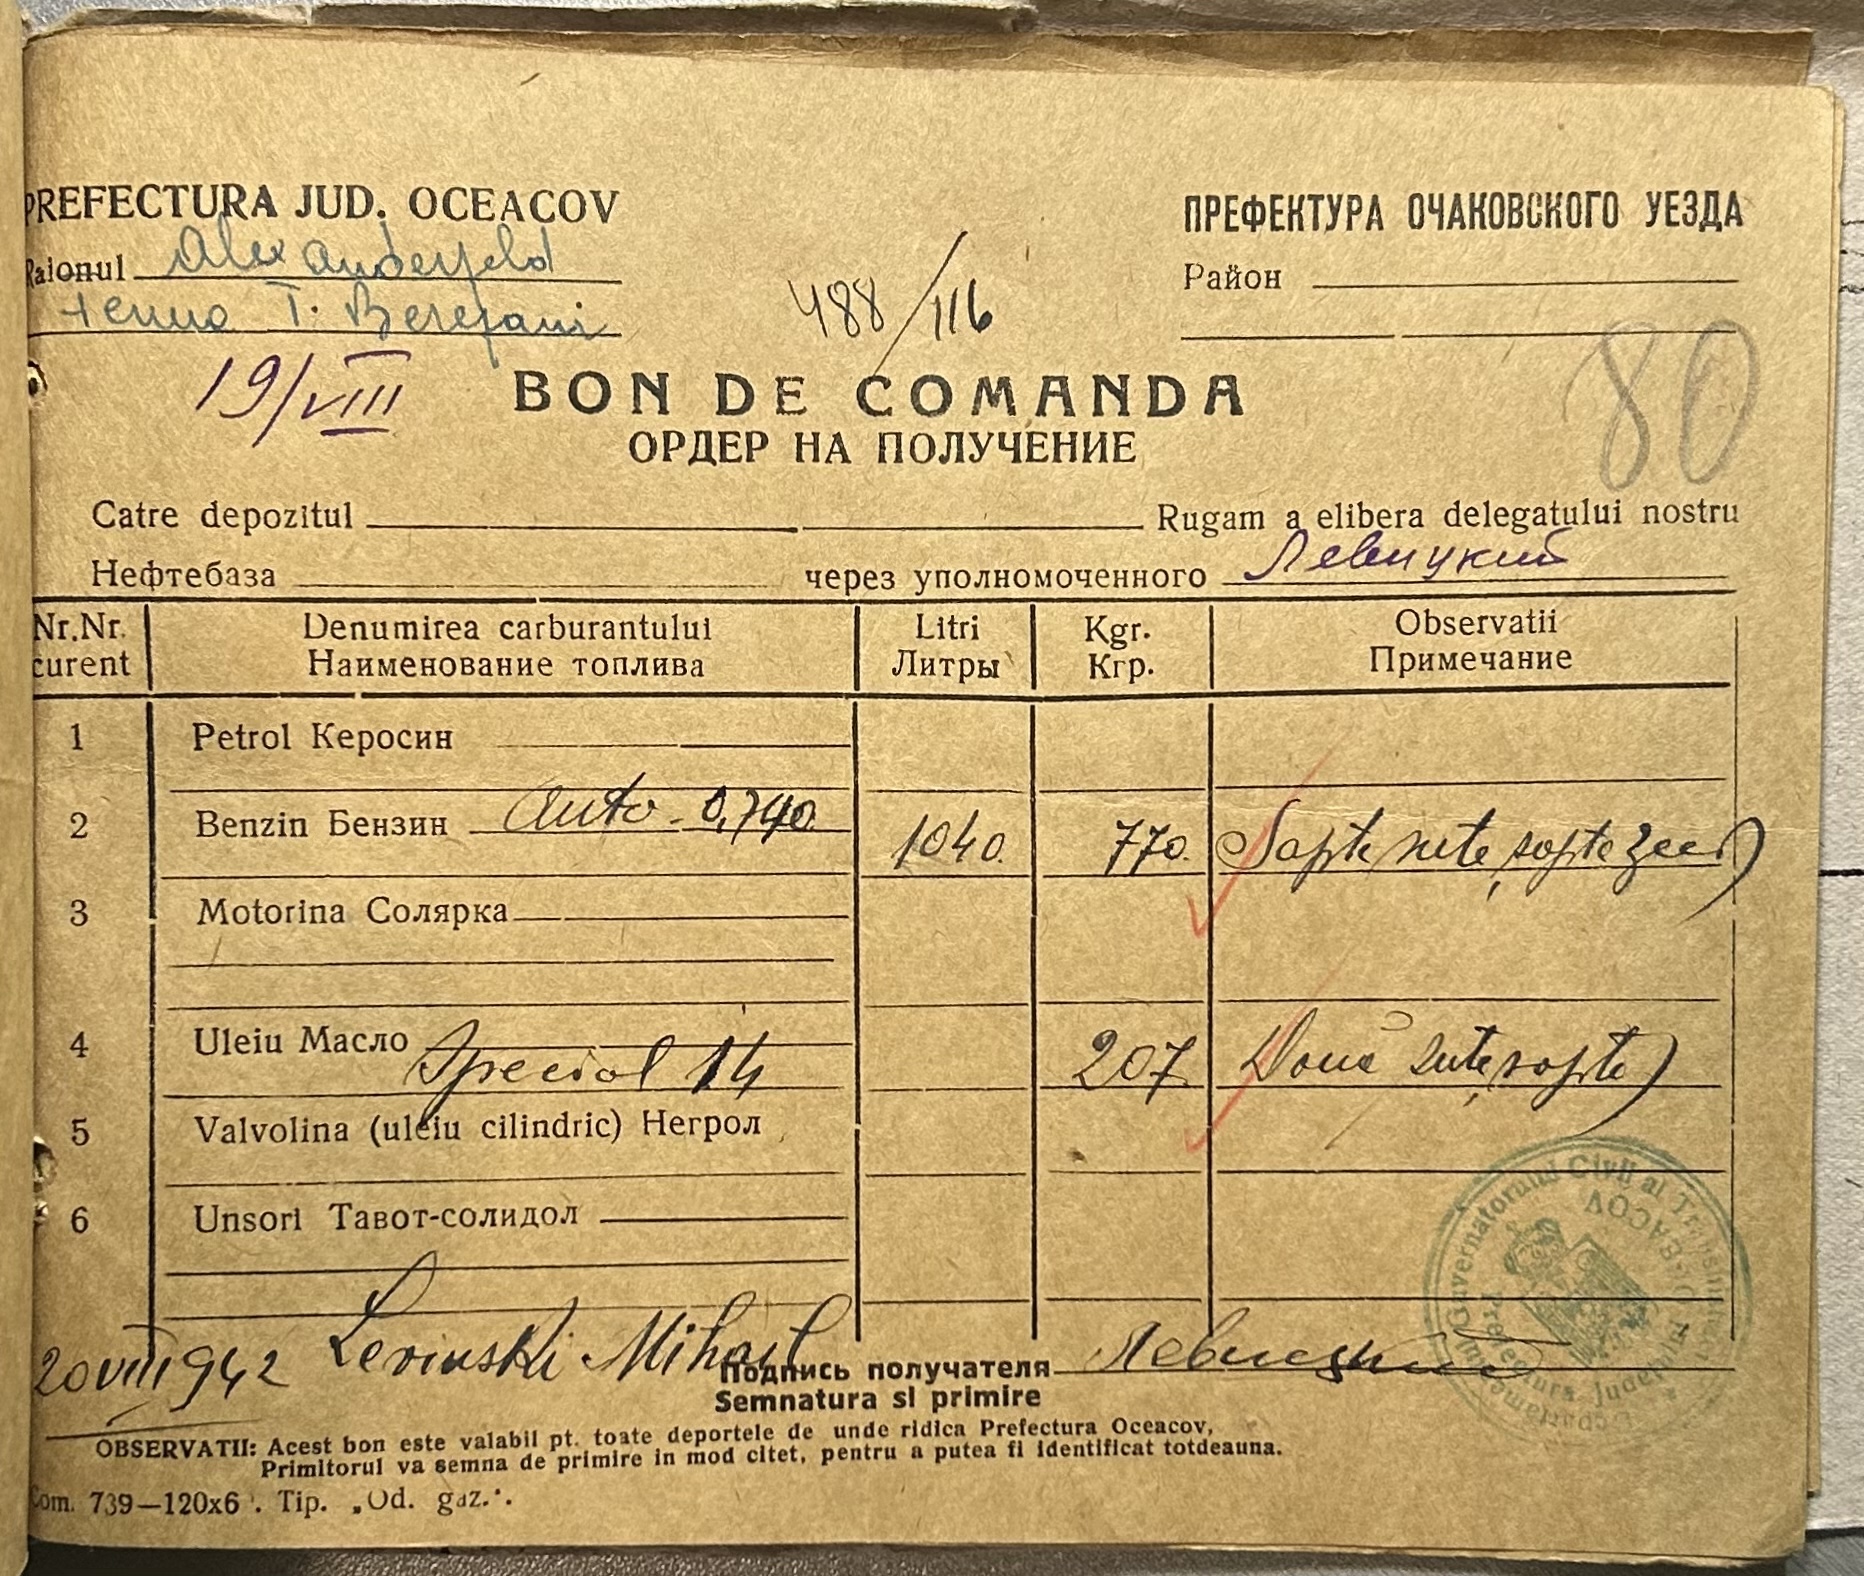 PREFECTURA JUD. OCEACOV
ПРЕФЕКТУРА ОЧАКОВСКОГО УЕЗДА
Raionul Alexanderfeld
Район
T. Berezani
488/116
80
19/VIII
BON DE COMANDA
ОРДЕР НА ПОЛУЧЕНИЕ
Catre depozitul Rugam a elibera delegatului nostru
Нефтебаза через уполномоченного Левицкий
Nr.Nr. curent Denumirea carburantului Litri Kgr. Observatii
Наименование топлива Литры Кгр. Примечание
1 Petrol Керосин
2 Benzin Бензин auto - 0,740 1040. 770. (Sapte sute, sapte zeci)
3 Motorina Солярка
4 Uleiu Масло Special 14 207 (Două sute, sapte)
5 Valvolina (uleiu cilindric) Негрол
6 Unsori Тавот-солидол
20 VIII 942 Levinski Mihail
Подпись получателя Левицкий
Semnatura si primire
Guvernatorului Civil al Transnistriei
OBSERVATII: Acest bon este valabil pt. toate deportele de unde ridica Prefectura Oceacov,
Primitorul va semna de primire in mod citet, pentru a putea fi identificat totdeauna.
Com. 739—120x6 . Tip. „Od. gaz.".